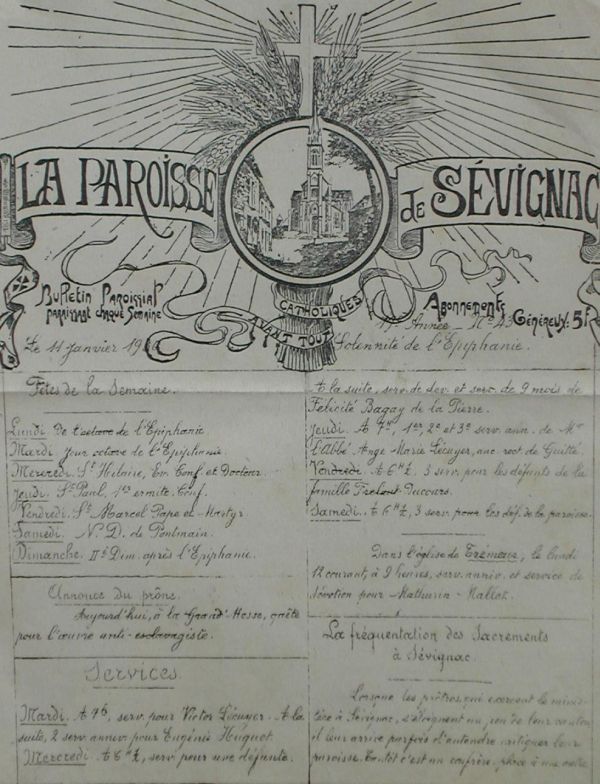 LA PAROISSE de SÉVIGNAC
Bulletin Paroissial
paraissant chaque Semaine
CATHOLIQUES
AVANT TOUT
Abonnements
Généreux: 5f
Année - N° 43
Le 11 janvier
Solennité de l'Epiphanie.
Fêtes de la Semaine.
Lundi. De l'octave de l'Epiphanie
Mardi. Jour octave de l'Epiphanie.
Mercredi. St Hilaire, Ev. Conf. et Docteur
Jeudi. St Paul, 1er ermite. Conf.
Vendredi. St Marcel Pape et Martyr
Samedi. N. D. de Pontmain.
Dimanche. IIe Dim. après l'Epiphanie.
Annonces du prône.
Aujourd'hui, à la Grand' Messe, quête
pour l'œuvre anti-esclavagiste.
Services.
Mardi. A 7h, serv. pour Victor Lécuyer. A la
suite, 2 serv. anniv. pour Eugénie Huguet.
Mercredi. A 6h ½, serv. pour une défunte.
A la suite, serv. de dev. et serv. de 9 mois de
Félicité Bagay de la Pierre.
Jeudi. A 7h, 1er 2e et 3e serv. ann. de Mr
l'Abbé Ange Marie Lécuyer, anc. rect. de Guitté.
Vendredi. A 6h ½, 3 serv. pour les défunts de la
famille Ducours.
Samedi. A 6h ½, 3 serv. pour les déf. de la paroisse.
Dans l'église de Trémeur, le lundi
12 courant, à 9 heures, serv. anniv. et service de
dévotion pour Mathurin Mallot.
La fréquentation des Sacrements
à Sévignac.
Lorsque les prêtres, qui exercent le minis-
tère à Sévignac, s'éloignent un peu de leur canton
il leur arrive parfois d'entendre critiquer leur
paroisse. Tantôt c'est un confrère, placé à une autre